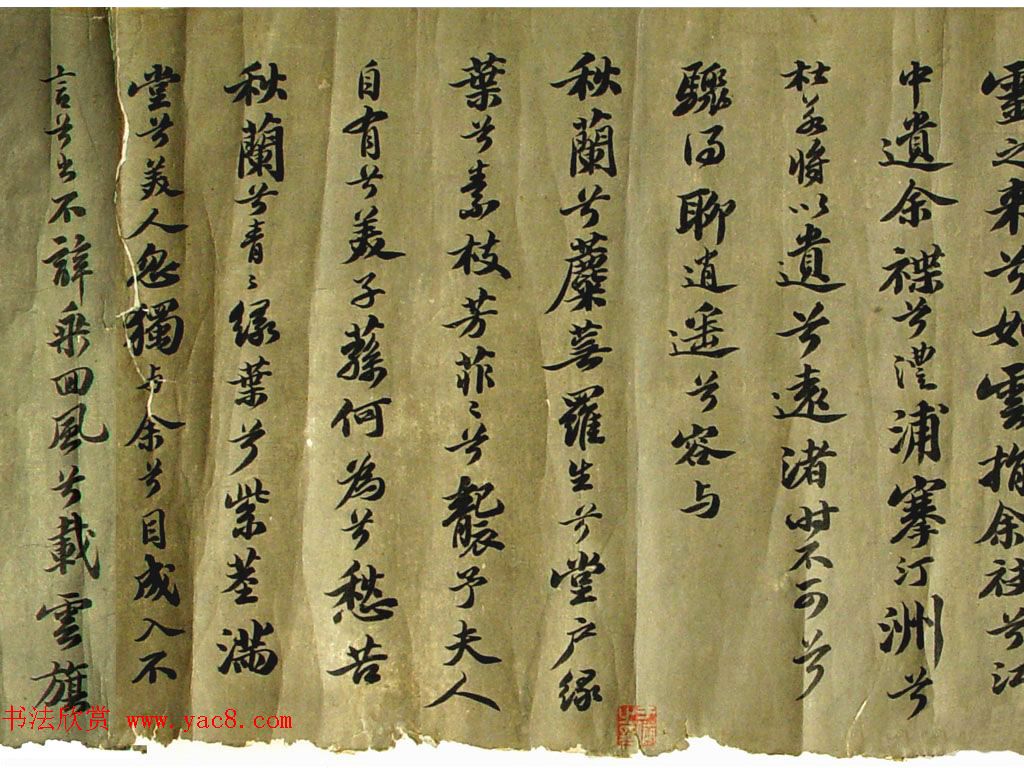 靈之来兮如雲捐余袂兮江
中遺余褋兮澧浦搴汀洲兮
杜若將以遺兮遠渚时不可兮
驟得聊逍遥兮容与
秋蘭兮蘪蕪羅生兮堂户緑
葉兮素枝芳菲〻兮襲予夫人
自有兮美子蓀何為兮愁苦
秋蘭兮青〻緑葉兮紫莖滿
堂兮美人忽獨与余兮目成入不
言兮出不辭乗回風兮載雲旗
书法欣赏 www.yac8.com